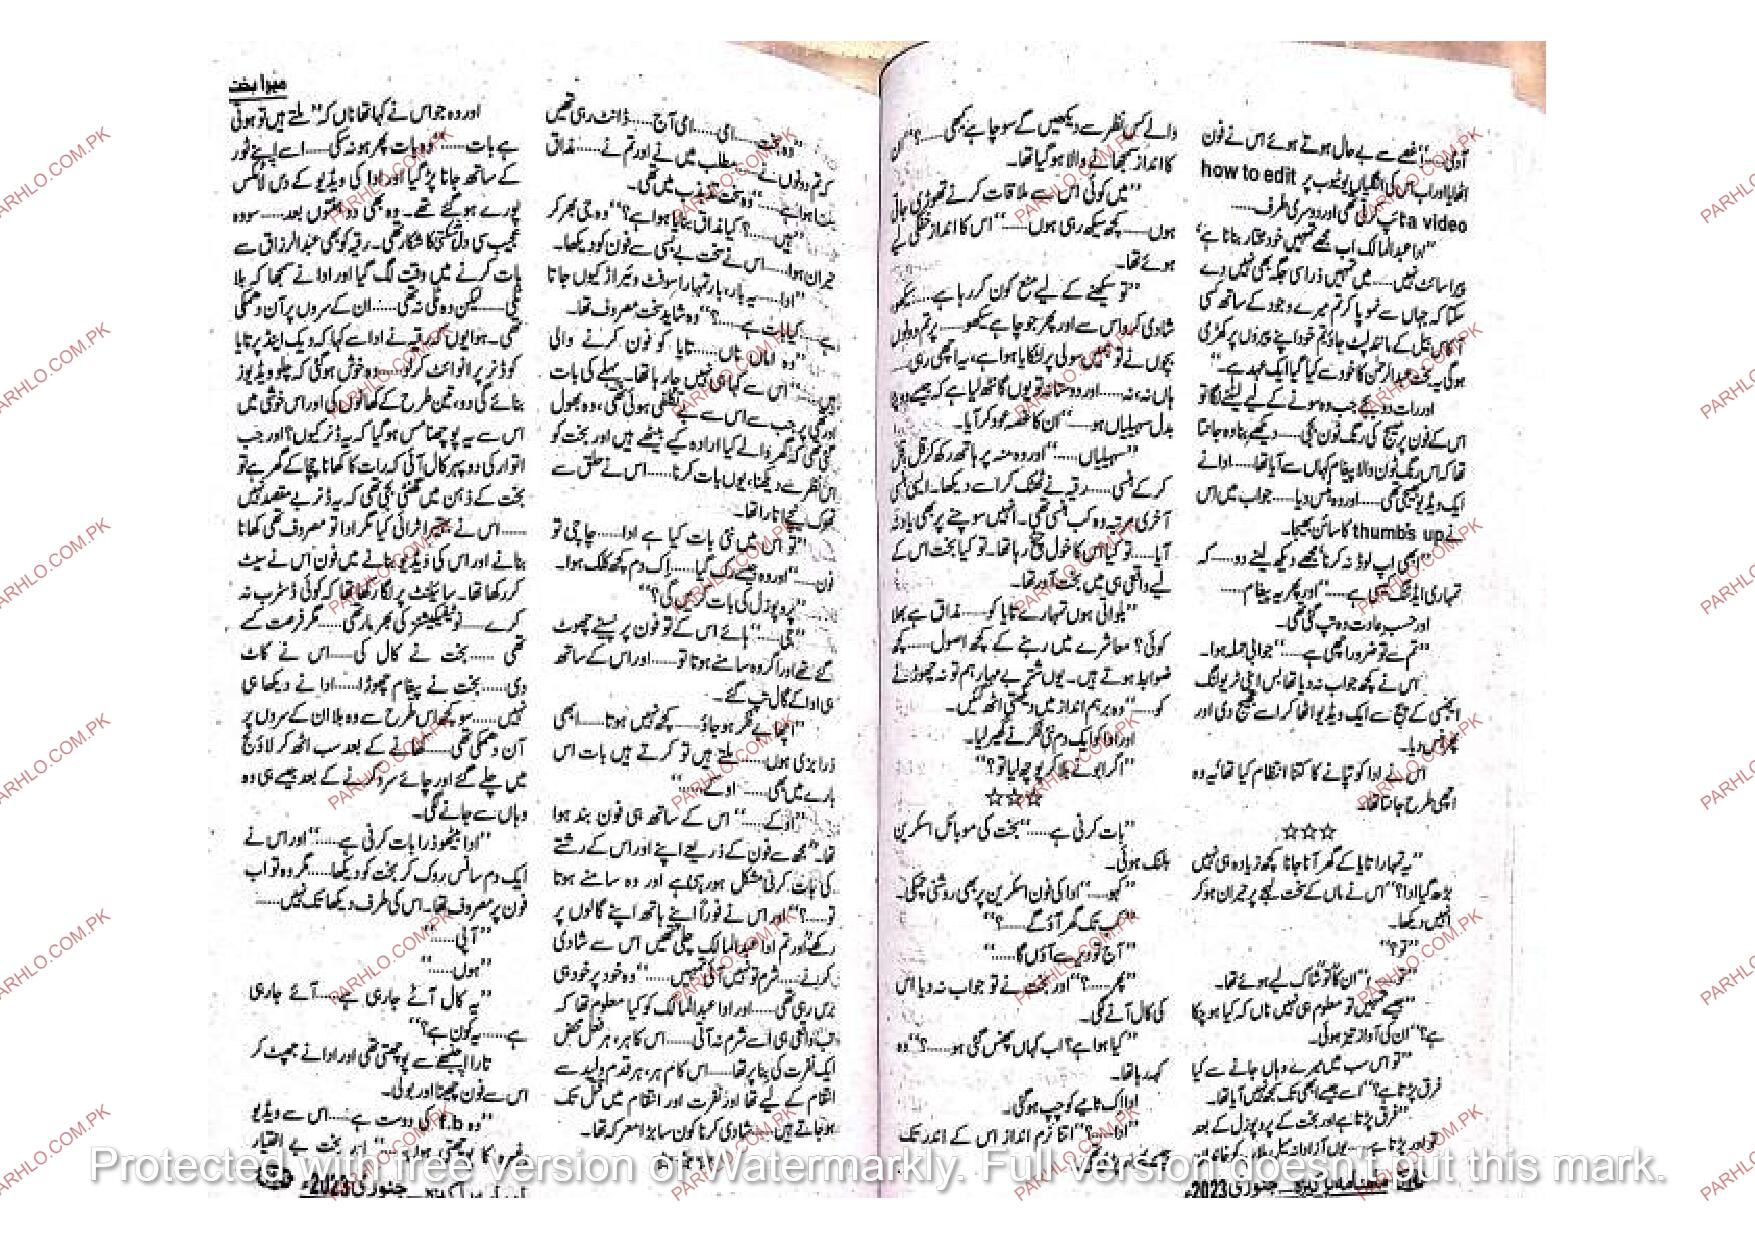 آؤٹی.....“غصے سے بے حال ہوتے ہوئے اس نے فون
اٹھایا اور اب اس کی انگلیاں یوٹیوب پر how to edit
a video ٹائپ کر رہی تھی اور دوسری طرف.....
”ادا عبدالمالک اب مجھے تمہیں خود مختار بنانا ہے‘
پیرا سائٹ نہیں..... میں تمہیں ذرا سی جگہ بھی نہیں دے
سکتا کہ جہاں سے نمو پا کر تم میرے وجود کے ساتھ کسی
آکاس بیل کے مانند لپٹ جاؤ تم خود اپنے پیروں پر کھڑی
ہوگی یہ بخت عبدالرحمٰن کا خود سے کیا گیا ایک عہد ہے۔“
اور رات دو بجے جب وہ سونے کے لیے لیٹنے لگا تو
اس کے فون پر میسج کی رنگ ٹون بجی..... دیکھے بنا وہ جانتا
تھا کہ اس رنگ ٹون والا پیغام کہاں سے آیا تھا..... ادا نے
ایک ویڈیو بھیجی تھی..... اور وہ ہنس دیا..... جواب میں اس
نے thumb's up کا سائن بھیجا۔
”ابھی اپ لوڈ نہ کرنا مجھے دیکھ لینے دو..... کہ
تمہاری ایڈیٹنگ کیسی ہے.....“ اور پھر یہ پیغام.....
اور حسب عادت وہ تپ گئی تھی۔
”تم سے تو ضرور اچھی ہے.....“ جوابی حملہ ہوا۔
اس نے کچھ جواب نہ دیا تھا بس اپنی ٹریولنگ
ایجنسی کے پیج سے ایک ویڈیو اٹھا کر اسے بھیج دی اور
پھر ہنس دیا۔
اس نے ادا کو تپانے کا کتنا انتظام کیا تھا یہ وہ
اچھی طرح جانتا تھا۔
☆☆☆
”یہ تمہارا تایا کے گھر آنا جانا کچھ زیادہ ہی نہیں
بڑھ گیا ادا؟“ اس نے ماں کے سخت لہجے پر حیران ہو کر
انہیں دیکھا۔
”تو؟“
”تو.....!“ ان کا ”تو“ شاک لیے ہوئے تھا۔
”جیسے تمہیں تو معلوم ہی نہیں ناں کہ کیا ہو چکا
ہے؟“ ان کی آواز تیز ہوئی۔
”تو اس سب میں میرے وہاں جانے سے کیا
فرق پڑتا ہے؟“ اسے جیسے ابھی تک سمجھ نہیں آیا تھا۔
”فرق پڑتا ہے اور بخت کے پروپوزل کے بعد
تو اور پڑتا ہے..... یوں آزادانہ میل ملاپ کو خاندان
جنوری 2023ء
والے کس نظر سے دیکھیں گے سوچا ہے کبھی.....؟“ ان
کا انداز سمجھانے والا ہو گیا تھا۔
”میں کوئی اس سے ملاقات کرنے تھوڑی جاتی
ہوں..... کچھ سیکھ رہی ہوں.....“ اس کا انداز خفگی لیے
ہوئے تھا۔
”تو سیکھنے کے لیے منع کون کر رہا ہے..... سیکھو
شادی کرو اس سے اور پھر جو چاہے سیکھو..... پر تم دونوں
بچوں نے تو ہمیں سولی پر لٹکایا ہوا ہے، یہ اچھی رہی.....
ہاں نہ، نہ..... اور دوستانہ تو یوں گانٹھ لیا ہے کہ جیسے دوپٹا
بدل سہیلیاں ہو.....“ ان کا غصہ عود کر آیا۔
”سہیلیاں.....“ اور وہ منہ پر ہاتھ رکھ کر قل قل
کر کے ہنسی..... رقیہ نے ٹھٹک کر اسے دیکھا۔ ایسی ہنسی
آخری مرتبہ وہ کب ہنسی تھی۔ انہیں سوچنے پر بھی یاد نہ
آیا..... تو کیا اس کا خول چیخ رہا تھا۔ تو کیا بخت اس کے
لیے واقعی ہی میں بخت آور تھا۔
”بلواتی ہوں تمہارے تایا کو..... مذاق ہے بھلا
کوئی؟ معاشرے میں رہنے کے کچھ اصول..... کچھ
ضوابط ہوتے ہیں۔ یوں شتر بے مہار ہم تو نہ چھوڑنے
کو.....“ وہ برہم انداز میں دیکھتی اٹھ گئیں۔
اور ادا کو ایک دم ہی فکر نے گھیر لیا۔
”اگر ابو نے بلا کر پوچھ لیا تو؟“
☆☆☆
”بات کرنی ہے.....“ بخت کی موبائل اسکرین
بلنک ہوئی۔
”کہو.....“ ادا کی فون اسکرین پر بھی روشنی چمکی۔
”کب تک گھر آؤ گے.....؟“
”آج تو دیر سے آؤں گا.....“
”پھر.....؟“ اور بخت نے تو جواب نہ دیا اس
کی کال آنے لگی۔
”کیا ہوا ہے؟ اب کہاں پھنس گئی ہو.....؟“ وہ
کہہ رہا تھا۔
ادا اک ثانیے کو چپ ہوگئی۔
”ادا.....؟“ اتنا نرم انداز اس کے اندر تک
”وہ بخت..... امی..... امی آج..... ڈانٹ رہی تھیں
کہ تم دونوں نے..... مطلب میں نے اور تم نے..... مذاق
بنا ہوا ہے.....“ وہ سخت تذبذب میں تھی۔
”ہیں.....؟ کیا مذاق بنایا ہوا ہے؟“ وہ جی بھر کر
حیران ہوا..... اس نے سخت بے بسی سے فون کو دیکھا۔
”ادا..... یہ بار، بار تمہارا سوفٹ ویئر اڑ کیوں جاتا
ہے..... کیا بات ہے.....؟“ وہ شاید سخت مصروف تھا۔
”وہ اماں ناں..... تایا کو فون کرنے والی
ہیں.....“ اس سے کہا ہی نہیں جا رہا تھا۔ پہلے کی بات
اور تھی پر جب سے اس سے بے تکلفی ہوئی تھی، وہ بھول
گئی تھی کہ گھر والے کیا ارادہ کیے بیٹھے ہیں اور بخت کو
اس نظر سے دیکھنا، یوں بات کرنا..... اس نے حلق سے
تھوک نیچے اتارا تھا۔
”تو اس میں نئی بات کیا ہے ادا..... چاچی تو
فون.....“ اور وہ جیسے رک گیا..... اک دم کچھ کلک ہوا۔
”پروپوزل کی بات کریں گی؟“
”جی.....“ ہائے اس کے تو فون پر پسینے چھوٹ
گئے تھے اور اگر وہ سامنے ہوتا تو..... اور اس کے ساتھ
ہی ادا کے گال تپ گئے۔
”اچھا بے فکر ہو جاؤ..... کچھ نہیں ہوتا..... ابھی
ذرا بزی ہوں..... ملتے ہیں تو کرتے ہیں بات اس
بارے میں بھی..... اوکے.....“
”اوکے.....“ اس کے ساتھ ہی فون بند ہوا
تھا۔ ”مجھ سے فون کے ذریعے اپنے اور اس کے رشتے
کی بات کرنی مشکل ہو رہی ہے اور وہ سامنے ہوتا
تو.....؟“ اور اس نے فوراً اپنے ہاتھ اپنے گالوں پر
رکھے اور تم ادا عبدالمالک چلی تھیں اس سے شادی
کرنے..... شرم تو نہیں آئی تمہیں.....“ وہ خود پر خود ہی
برس رہی تھی..... اور ادا عبدالمالک کو کیا معلوم تھا کہ
تب واقعی ہی اسے شرم نہ آتی..... اس کا ہر، ہر فعل محض
ایک نفرت کی بنا پر تھا..... اس کا ہر، ہر قدم ولید سے
انتقام کے لیے تھا اور نفرت اور انتقام میں قتل تک
ہو جاتے ہیں..... شادی کرنا کون سا بڑا معرکہ تھا۔
میرا بخت
اور وہ جو اس نے کہا تھا ناں کہ ”ملتے ہیں تو ہوتی
ہے بات.....“ وہ بات پھر ہو نہ سکی..... اسے اپنے ٹور
کے ساتھ جانا پڑ گیا اور ادا کی ویڈیو کے دس لائکس
پورے ہو گئے تھے۔ وہ بھی دو ہفتوں بعد..... سو وہ
عجیب سی دل شکنی کا شکار تھی۔ رقیہ کو بھی عبدالرزاق سے
بات کرنے میں وقت لگ گیا اور ادا نے سمجھا کہ بلا
ٹلی..... لیکن وہ ٹلی نہ تھی..... ان کے سروں پر آن دھمکی
تھی۔ ہوا یوں کہ رقیہ نے ادا سے کہا کہ ویک اینڈ پر تایا
کو ڈنر پر انوائٹ کر لو..... وہ خوش ہوگئی کہ چلو ویڈیوز
بنائے گی دو، تین طرح کے کھانوں کی اور اس خوشی میں
اس سے یہ پوچھنا مس ہو گیا کہ یہ ڈنر کیوں؟ اور جب
اتوار کی دوپہر کال آئی کہ رات کا کھانا چچا کے گھر ہے تو
بخت کے ذہن میں گھنٹی بجی تھی کہ یہ ڈنر بے مقصد نہیں
..... اس نے بہتیرا ٹرائی کیا مگر ادا تو مصروف تھی کھانا
بنانے اور اس کی ویڈیو بنانے میں فون اس نے سیٹ
کر رکھا تھا۔ سائیلنٹ پر لگا رکھا تھا کہ کوئی ڈسٹرب نہ
کرے..... نوٹیفکیشنز کی بھرمار تھی..... مگر فرصت کے
تھی..... بخت نے کال کی..... اس نے کاٹ
دی..... بخت نے پیغام چھوڑا..... ادا نے دیکھا ہی
نہیں..... سو کچھ اس طرح سے وہ بلا ان کے سروں پر
آن دھمکی تھی..... کھانے کے بعد سب اٹھ کر لاؤنج
میں چلے گئے اور چائے سرو کرنے کے بعد جیسے ہی وہ
وہاں سے جانے لگی۔
”ادا بیٹھو ذرا بات کرنی ہے.....“ اور اس نے
ایک دم سانس روک کر بخت کو دیکھا..... مگر وہ تو اب
فون پر مصروف تھا۔ اس کی طرف دیکھا تک نہیں.....
”آپی.....“
”ہوں.....“
”یہ کال آئے جا رہی ہے..... آئے جا رہی
ہے..... یہ کون ہے؟“
تارا اچنبھے سے پوچھتی تھی اور ادا نے جھپٹ کر
اس سے فون چھینا اور بولی۔
”وہ f.b کی دوست ہے..... اس سے ویڈیو
وغیرہ کا پوچھتی ہوں.....“ اس بخت بے اختیار
جنوری 2023ء
PARHLO.COM.PK
Protected with free version of Watermarkly. Full version doesn't put this mark.